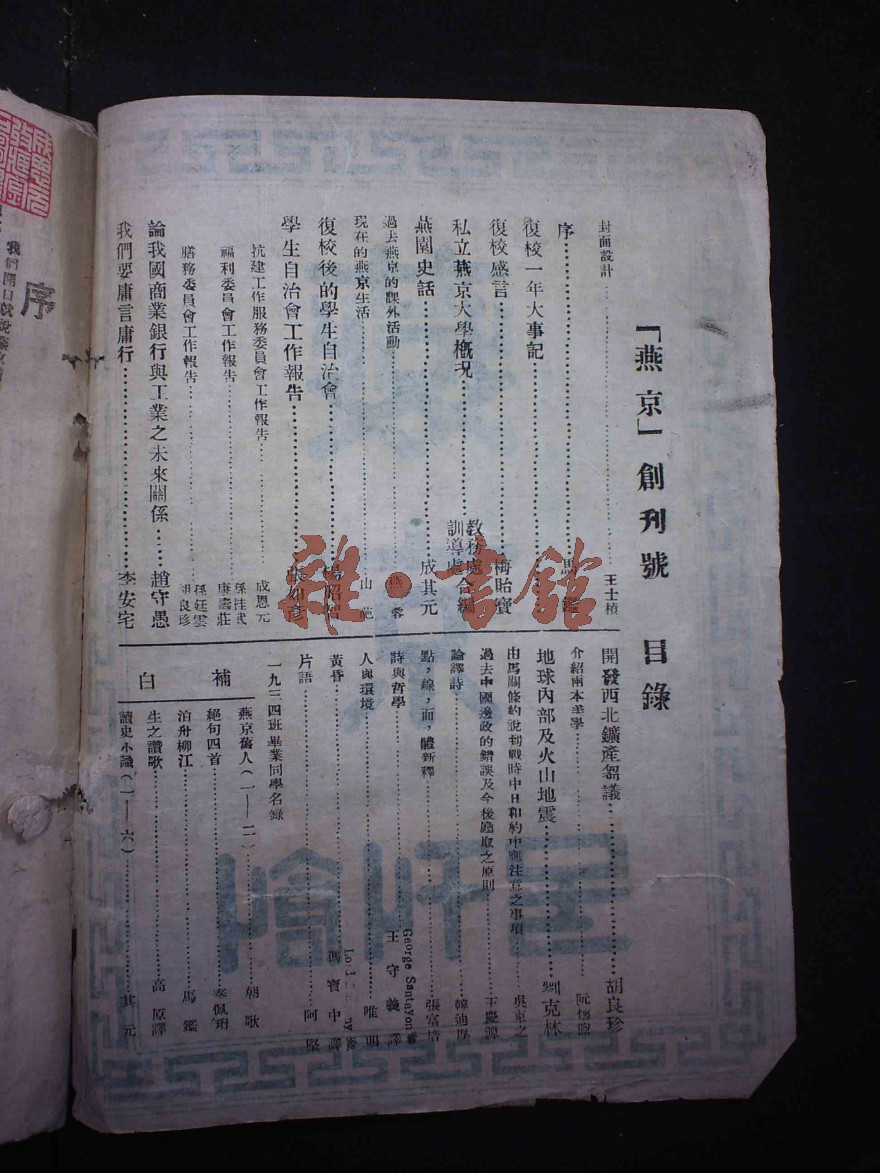 「燕京」創刊號 目錄
封面設計…王士楨
序…馬鑑
復校一年大事記
復校感言…梅貽寶
私立燕京大學概況…教務處訓導處合編
燕園史話…成其元
過去燕京的課外活動…燕蓉
現在的燕京生活…山
復校後的學生自治會…楊昭
學生自治會工作報告…張如彥
抗建工作服務委員會工作報告…成恩元
福利委員會工作報告…孫桂 康壽莊
膳務委員會工作報告…孫廷雲 胡良珍
論我國商業銀行與工業之未來關係…趙守愚
我們要庸言庸行…李安宅
開發西北鑛產芻議…胡良珍
介紹兩本美學…阮
地球內部及火山地震…劉克林
由馬關條約說到戰時中日和約中應注意之事項…吳東之
過去中國邊政的錯誤及今後應取之原則…王慶源
論譯詩…韓迪厚
點,線,面,體新釋…張富培
詩與哲學…George Santayon著 王守義譯
人與環境…唯明
黃昏…馮寶中譯
片語…阿堅
一九三四班畢業同學名錄
補白
燕京舊人(一——二)…朝歌
絕句四首…秦佩珩
泊舟柳江…馬鑑
生之讚歌…高原譯
讀史小識(一——六)…其元
序
雜·書館
創刊